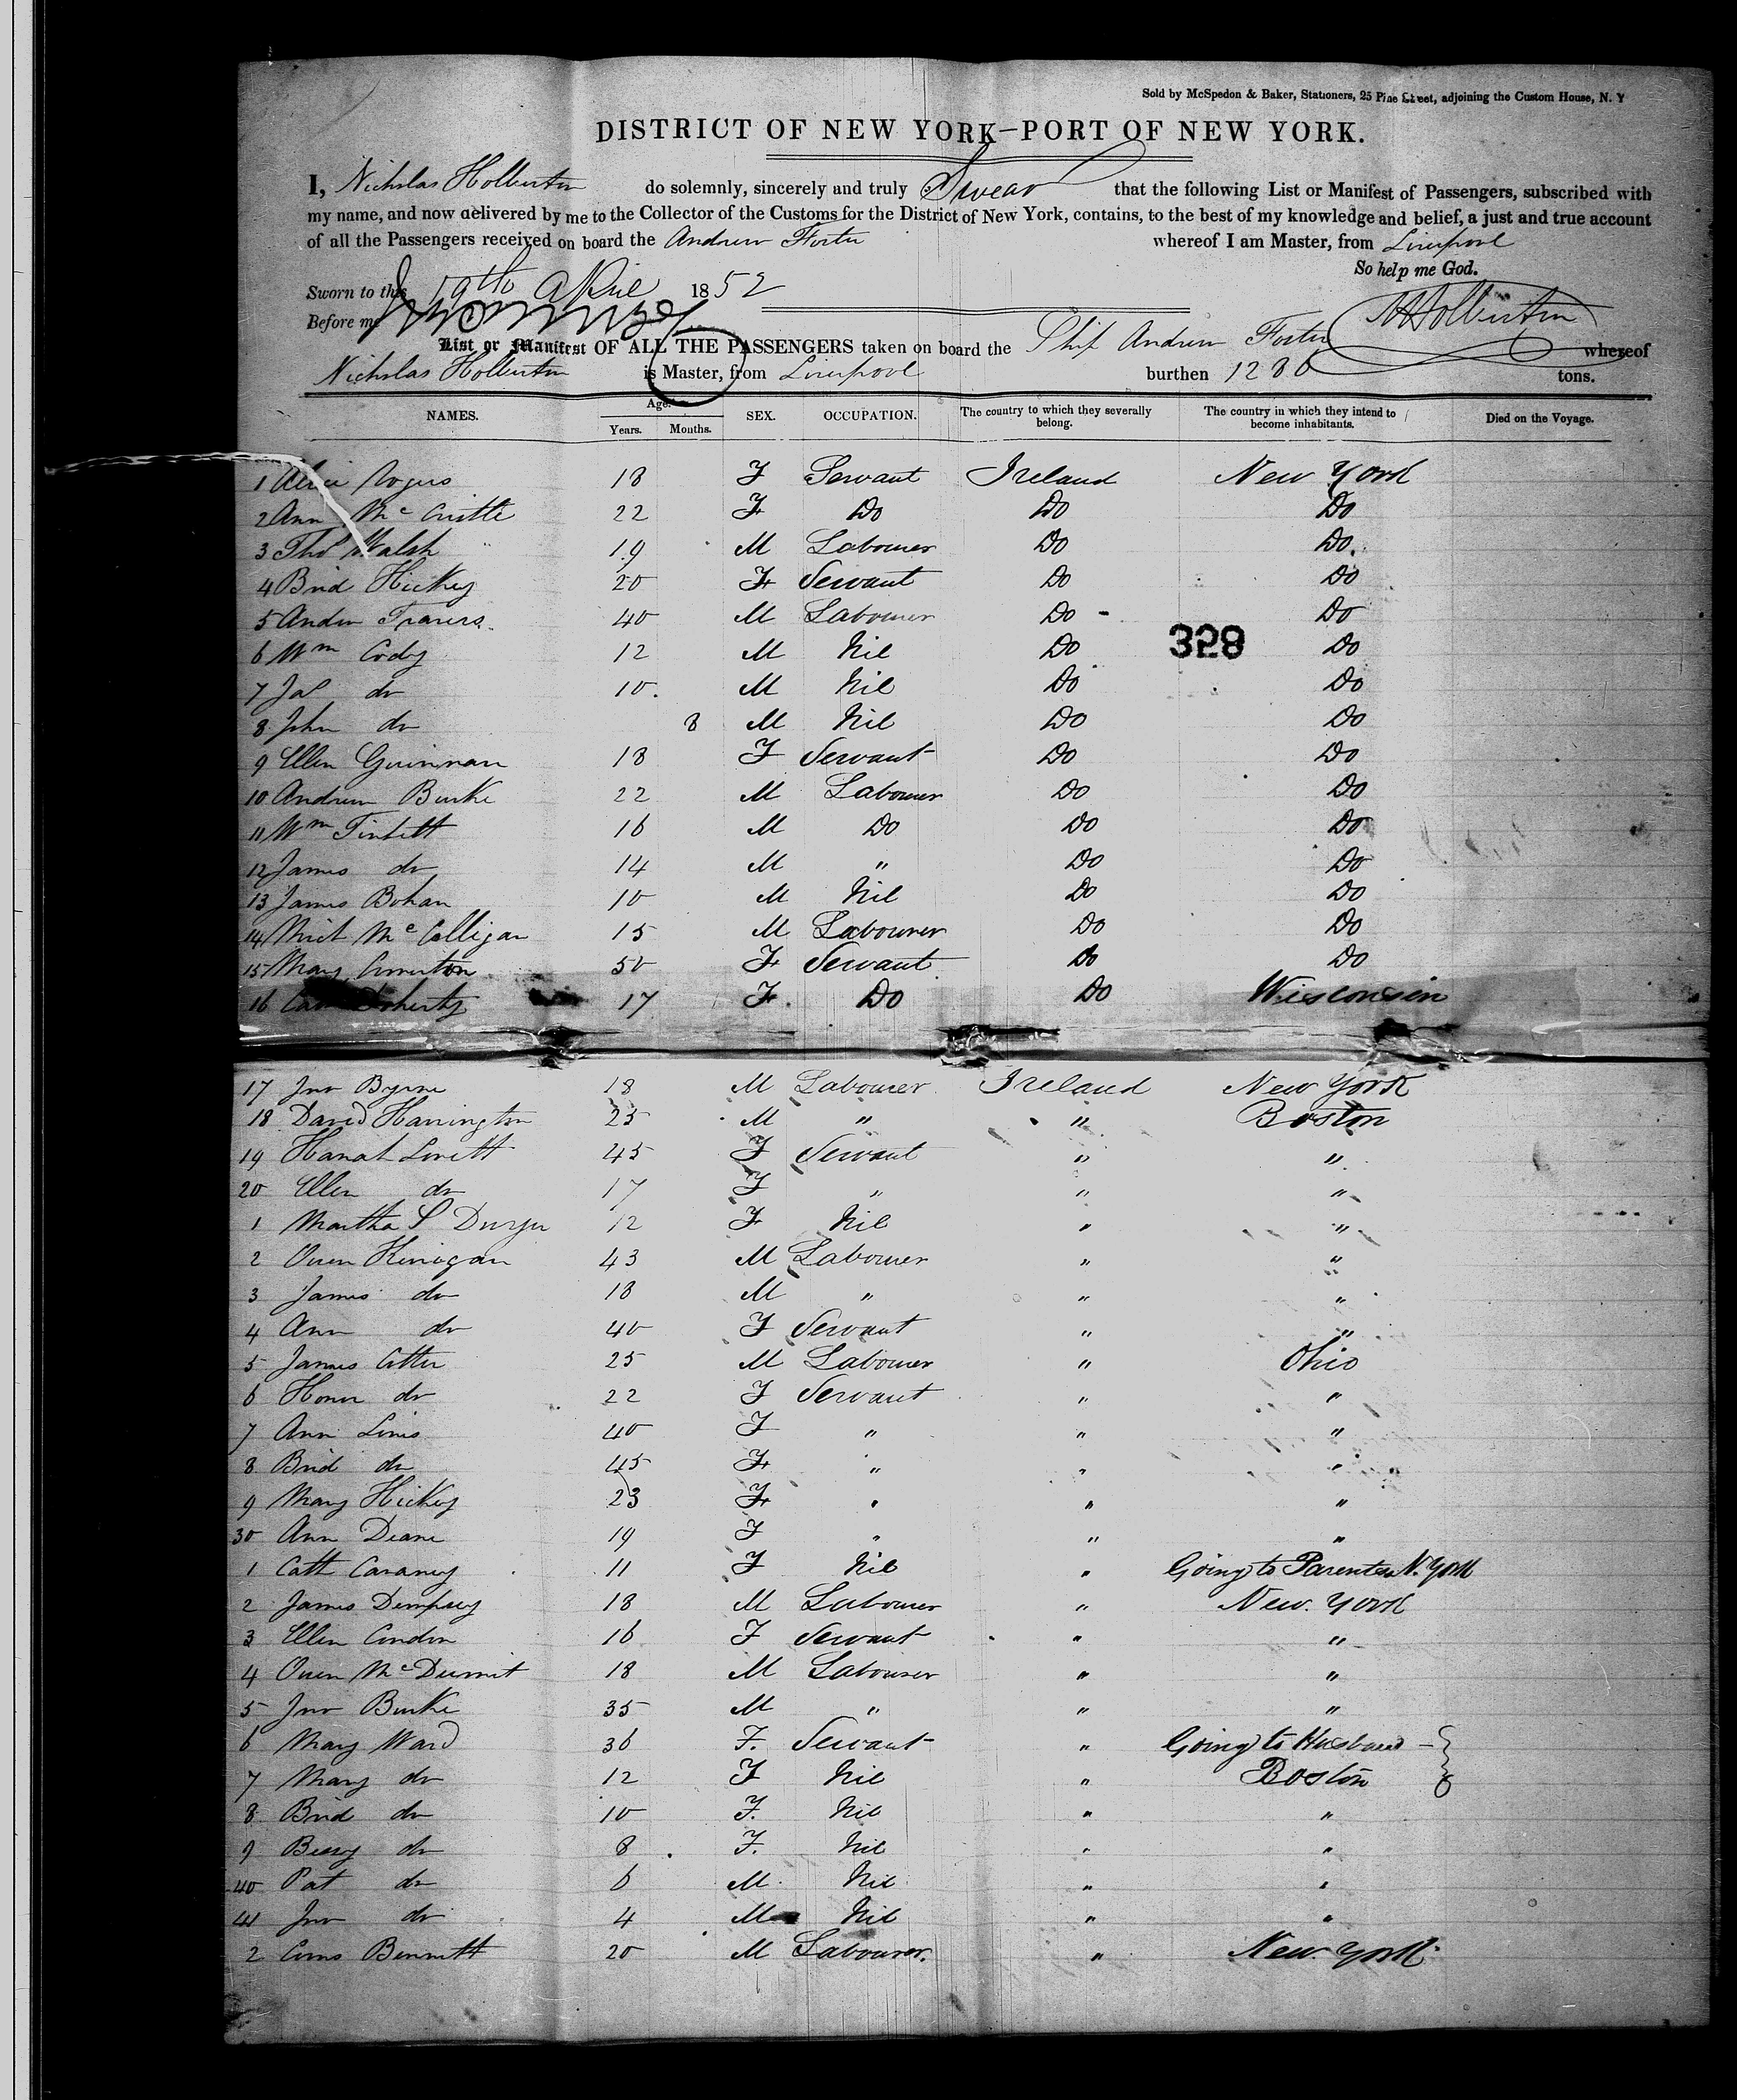 Sold by McSpedon & Baker, Stationers, 25 Pine Street, adjoining the Custom House, N. Y
DISTRICT OF NEW YORK—PORT OF NEW YORK.
I, Nicholas Holberton do solemnly, sincerely and truly Swear that the following List or Manifest of Passengers, subscribed with
my name, and now delivered by me to the Collector of the Customs for the District of New York, contains, to the best of my knowledge and belief, a just and true account
of all the Passengers received on board the Andrew Foster whereof I am Master, from Liverpool
So help me God.
Sworn to this 19th April 1852
Before me N Holberton
List or Manifest OF ALL THE PASSENGERS taken on board the Ship Andrew Foster whereof
Nicholas Holberton is Master, from Liverpool burthen 1286 tons.
NAMES. Age. Years. Months. SEX. OCCUPATION. The country to which they severally belong. The country in which they intend to become inhabitants. Died on the Voyage.
1 Alice Rogers 18 F Servant Ireland New York
2 Ann Mc Cristle 22 F Do Do Do
3 Thos Walsh 19 M Labourer Do Do
4 Brid Hickey 20 F Servant Do Do
5 Andw Travers 40 M Labourer Do Do
328
6 Wm Cody 12 M Nil Do Do
7 Jas do 10 M Nil Do Do
8 John do 8 M Nil Do Do
9 Ellen Guinnan 18 F Servant Do Do
10 Andrew Burke 22 M Labourer Do Do
11 Wm Tintett 16 M Do Do Do
12 James do 14 M " Do Do
13 James Bohan 10 M Nil Do Do
14 Mich Mc Colligan 15 M Labourer Do Do
15 Mary 50 F Servant Do Do
16 Cath Doherty 17 F Do Do Wisconsin
17 Jno Byrne 18 M Labourer Ireland New York
18 David Harrington 25 M " " Boston
19 Hanah Lovett 45 F Servant " "
20 Ellen do 17 F " " "
1 Martha S Duryu 12 F Nil " "
2 Owen Kinigan 43 M Labourer " "
3 James do 18 M " " "
4 Ann do 40 F Servant " "
5 James Cotter 25 M Labourer " Ohio
6 Honor do 22 F Servant " "
7 Ann Linis 40 F " " "
8 Brid do 45 F " " "
9 Mary Hickey 23 F " " "
30 Ann Deane 19 F " " "
1 Cath Cavaney 11 F Nil " Going to Parents N. York
2 James Dempsey 18 M Labourer " New York
3 Ellen Condon 16 F Servant " "
4 Owen McDermit 18 M Labourer " "
5 Jno Burke 35 M " " "
6 Mary Ward 36 F. Servant " Going to Husband
7 Mary do 12 F Nil " Boston
8 Brid do 10 F. Nil " "
9 Bessy do 8 F. Nil " "
40 Pat do 6 M Nil " "
41 Jno do 4 M Nil " "
2 Corns Bennett 20 M Labourer. " New York